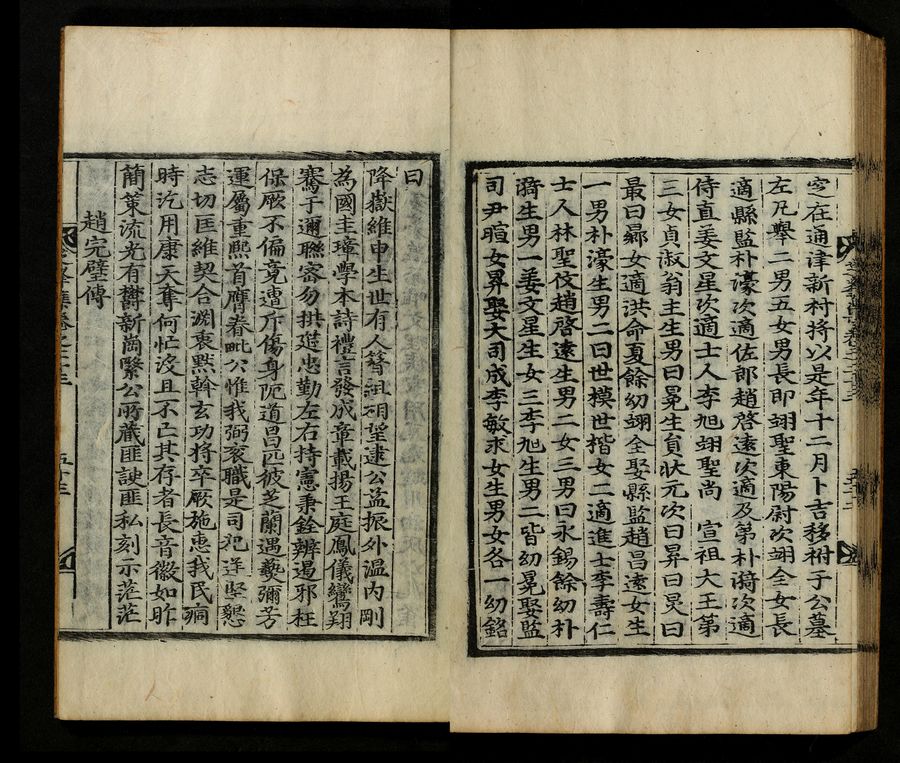 空在通津新村將以是年十二月卜吉移祔于公墓
左凡擧二男五女男長卽翊聖東陽尉次翊全女長
適縣監朴濠次適佐郞趙啓遠次適及第朴漪次適
侍直姜文星次適士人李旭翊聖尚 宣祖大王第
三女貞淑翁主生男曰冕生員狀元次曰昇曰炅曰
最曰昴女適洪命夏餘幼翊全娶縣監趙昌遠女生
一男朴濠生男二曰世模世楷女二適進士李壽仁
士人林聖伋趙啓遠生男二女三男曰永錫餘幼朴
漪生男一姜文星生女三李旭生男二皆幼冕娶監
司尹暄女昇娶大司成李敏求女生男女各一幼銘
曰
降嶽維申生世有人簪組碩望逮公益振外溫內剛
為國圭璋學本詩禮言發成章載揚王庭鳳儀鸞翔
騫于邇聯密勿拱邇忠勤左右持憲秉銓辨遏邪枉
保厥不偏竟遭斥傷身阨道昌匹彼芝蘭遇爇彌芳
運屬重熙首膺眷毗公惟我弼袞職是司祀洋堅懇
志切匡維契合淵衷默斡玄功將卒厥施惠我民痌
時汔用康天奪何忙沒且不亡其存者長音徽如昨
簡策流光有鬱新崗繄公所藏匪諛匪私刻示茫茫
趙完璧傳